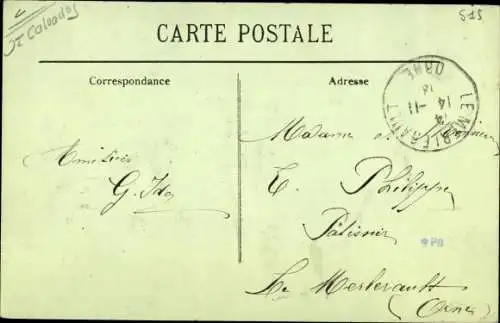 Calvados
515
CARTE POSTALE
Correspondance
Adresse
LE MERLERAULT
ORNE
14 - 11
Madame
Amitiés
G.
E. Philippe
Pâtissier
Le Merlerault
(Orne)